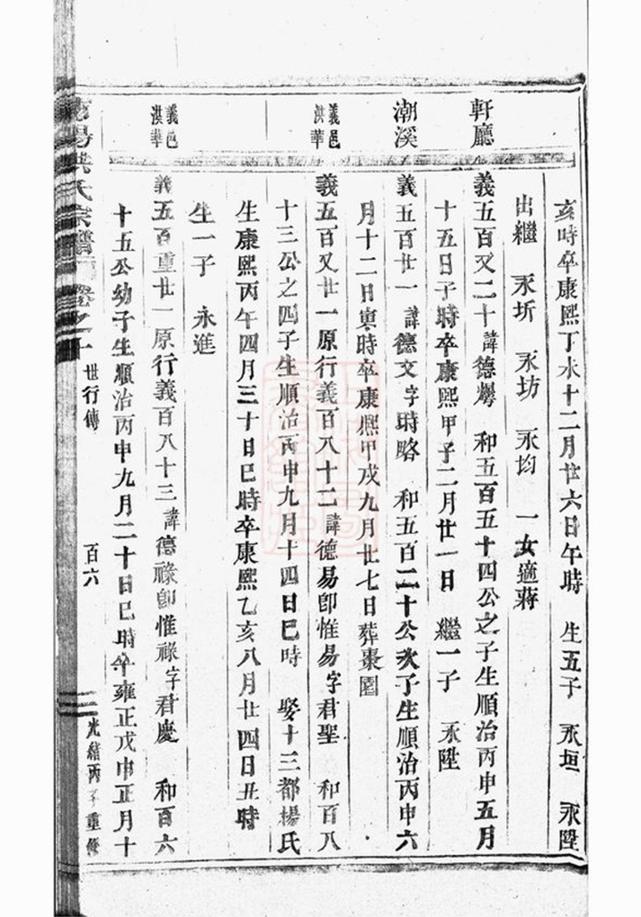 亥時卒康熙丁未十二月廿六日午時　生五子　永垣　永陞
出繼　永圻　永坊　永均　一女適蔣
軒廳
義五百又二十諱德　和五百五十四公之子生順治丙申五月
十五日子時卒康熙甲子二月廿一日　繼一子　永陞
潮溪
義五百廿一諱德文字時略　和五百二十公次子生順治丙申六
月十二日寅時卒康熙甲戌九月廿七日葬棗園
義邑
洪華
義五百又廿一原行義百八十二諱德易卽惟易字君聖　和百八
十三公之四子生順治丙申九月十四日巳時　娶十三都楊氏
生康熙丙午四月三十日巳時卒康熙乙亥八月廿四日丑時
生一子　永進
義邑
洪華
義五百重廿一原行義百八十三諱德祿卽惟祿字君慶　和百六
十五公幼子生順治丙申九月二十日巳時卒雍正戊申正月十
洪氏宗譜　卷之　世行傳　百六　光緒丙子重修